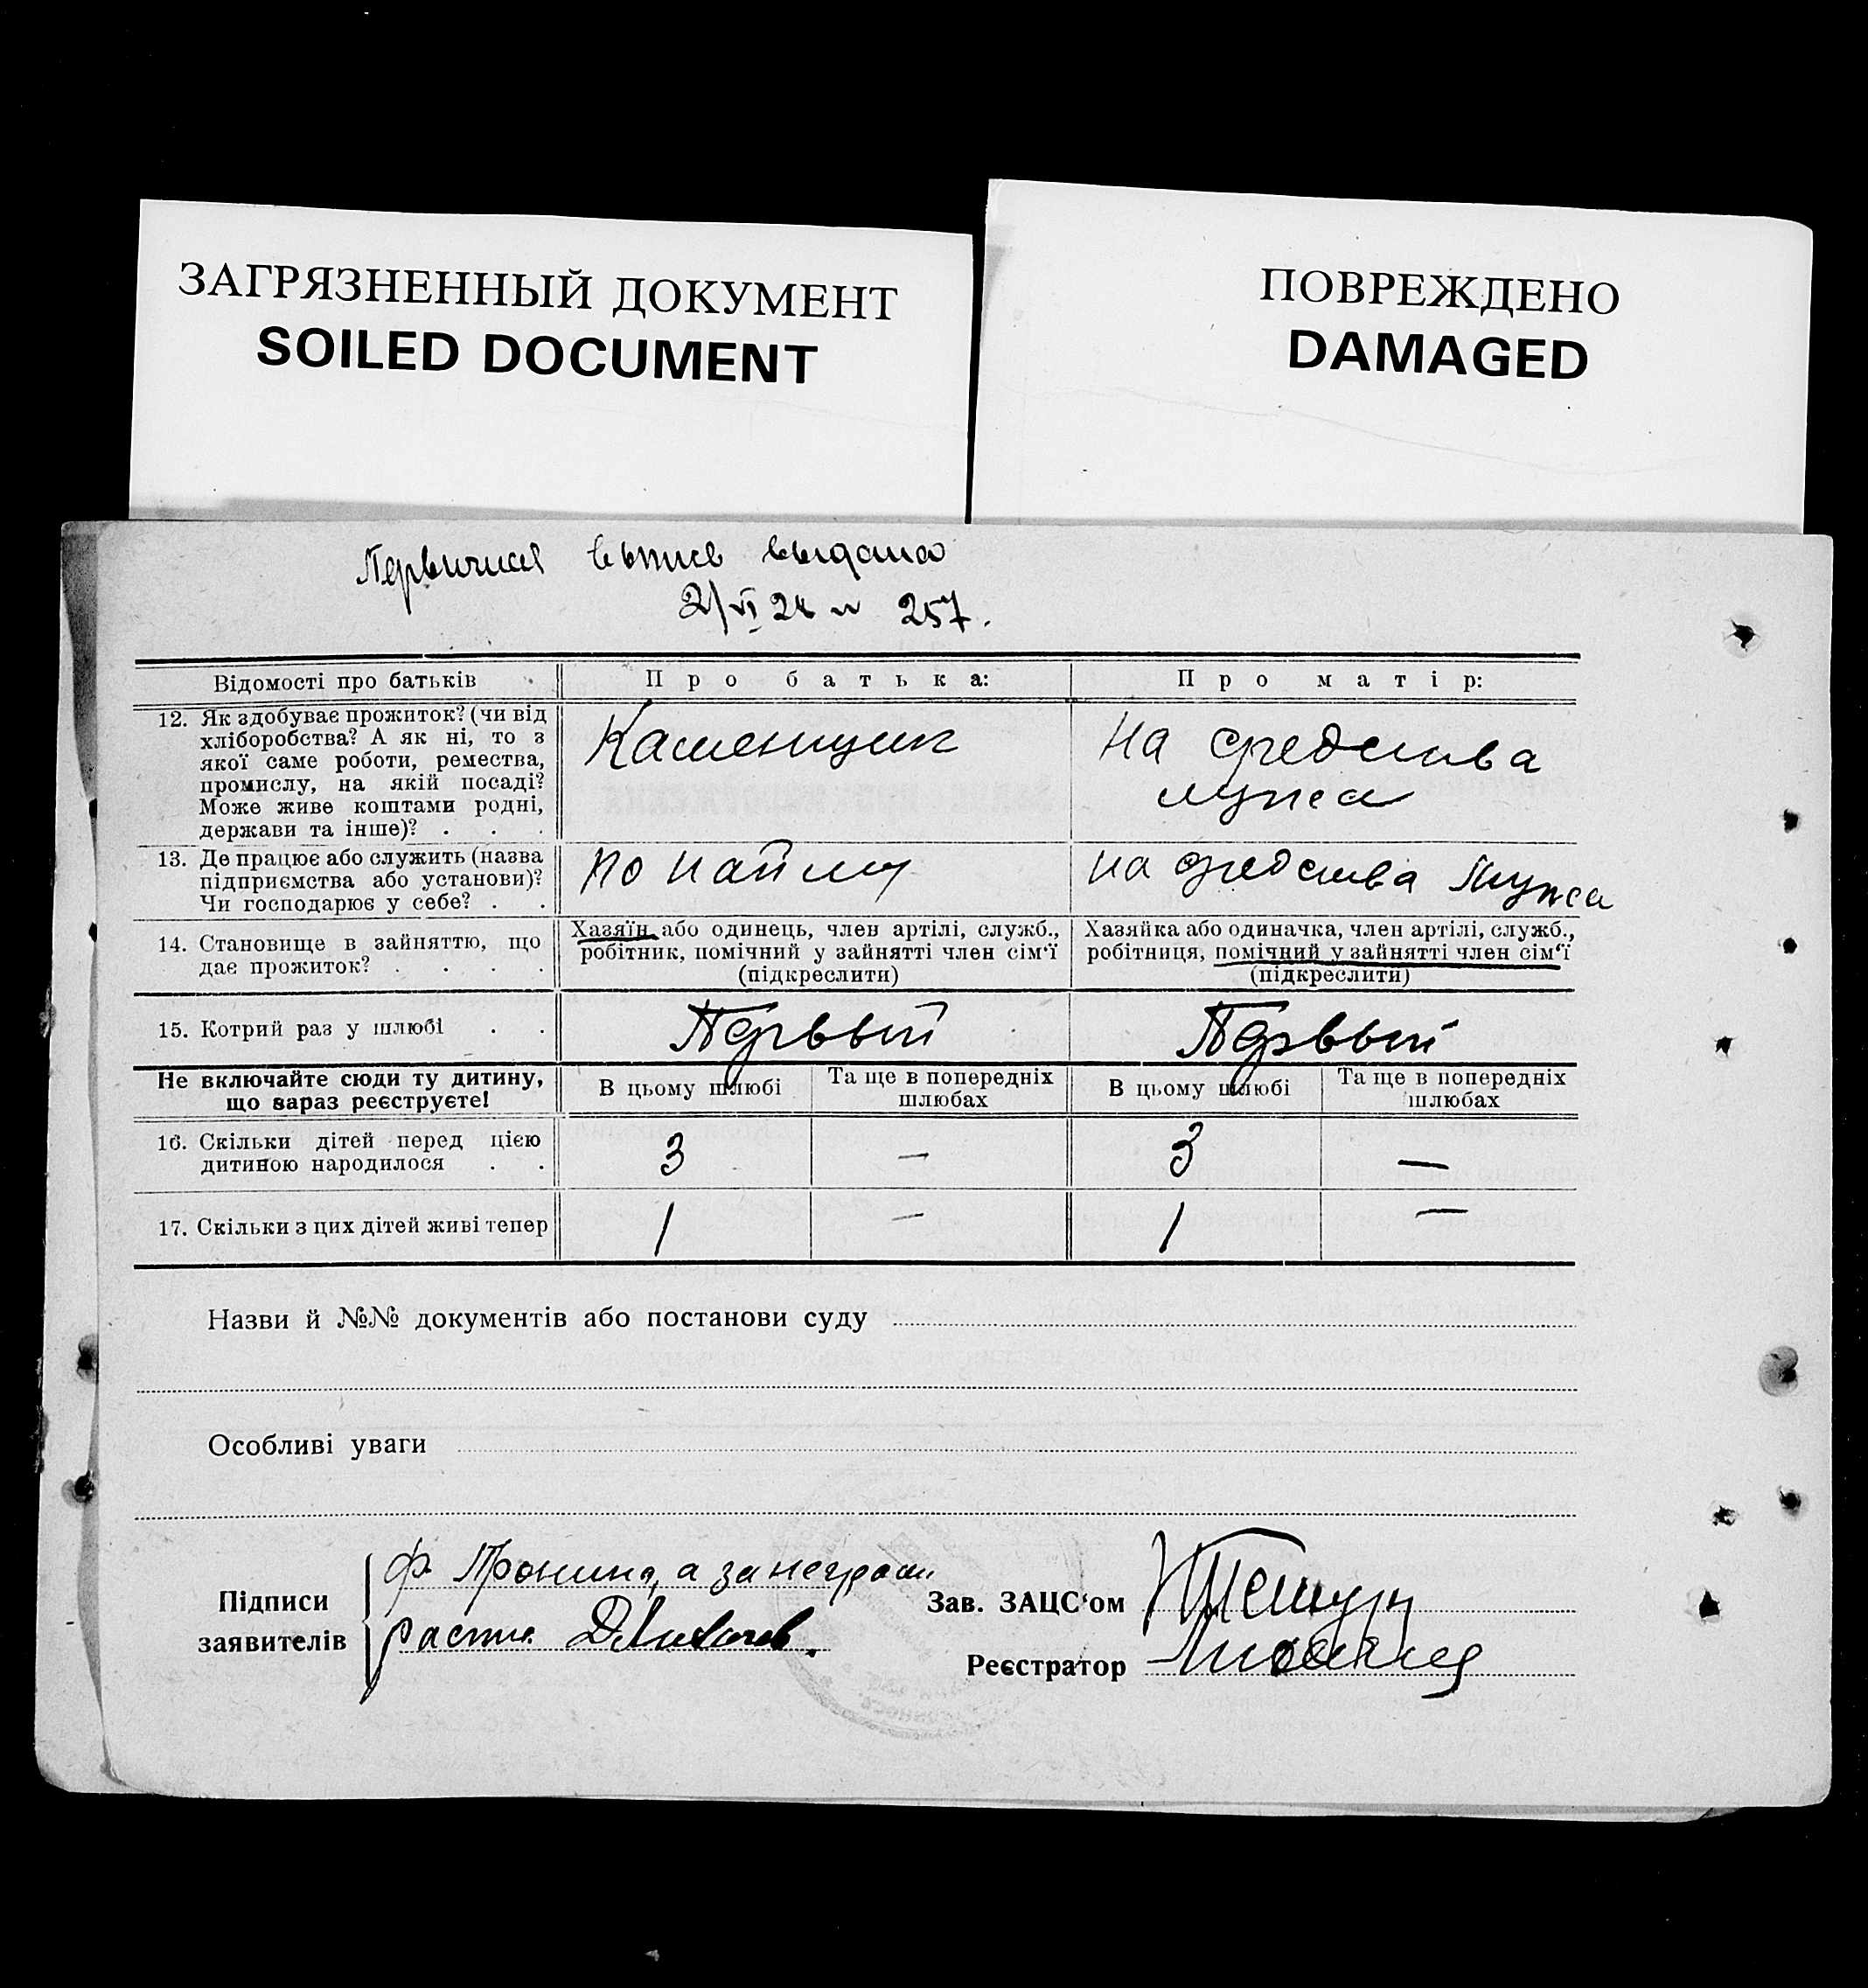 ЗАГРЯЗНЕННЫЙ ДОКУМЕНТ
SOILED DOCUMENT
ПОВРЕЖДЕНО
DAMAGED
Первичная выпись выдана
2/VI 28 № 257.
Відомості про батьків
Про батька:
Про матір:
12. Як здобуває прожиток? (чи від
хліборобства? А як ні, то з
якої саме роботи, ремества,
промислу, на якій посаді?
Може живе коштами родні,
держави та інше)? . . .
Каменщик
На средства
мужа
13. Де працює або служить (назва
підприємства або установи)?
Чи господарює у себе? . .
по найму
на средства мужа
14. Становище в зайняттю, що
дає прожиток? . . . .
Хазяїн або одинець, член артілі, служб.,
робітник, помічний у зайнятті член сім‘ї
(підкреслити)
Хазяйка або одиначка, член артілі, служб.,
робітниця, помічний у зайнятті член сім‘ї
(підкреслити)
15. Котрий раз у шлюбі . .
Первый
Первый
Не включайте сюди ту дитину,
що зараз реєструєте!
В цьому шлюбі
Та ще в попередніх
шлюбах
В цьому шлюбі
Та ще в попередніх
шлюбах
16. Скільки дітей перед цією
дитиною народилося . .
3
—
3
—
17. Скільки з цих дітей живі тепер
1
—
1
—
Назви й №№ документів або постанови суду
Особливі уваги
Підписи
заявителів
Ф. Пронина, а за неграм.
распис.
Зав. ЗАЦС‘ом
Реєстратор